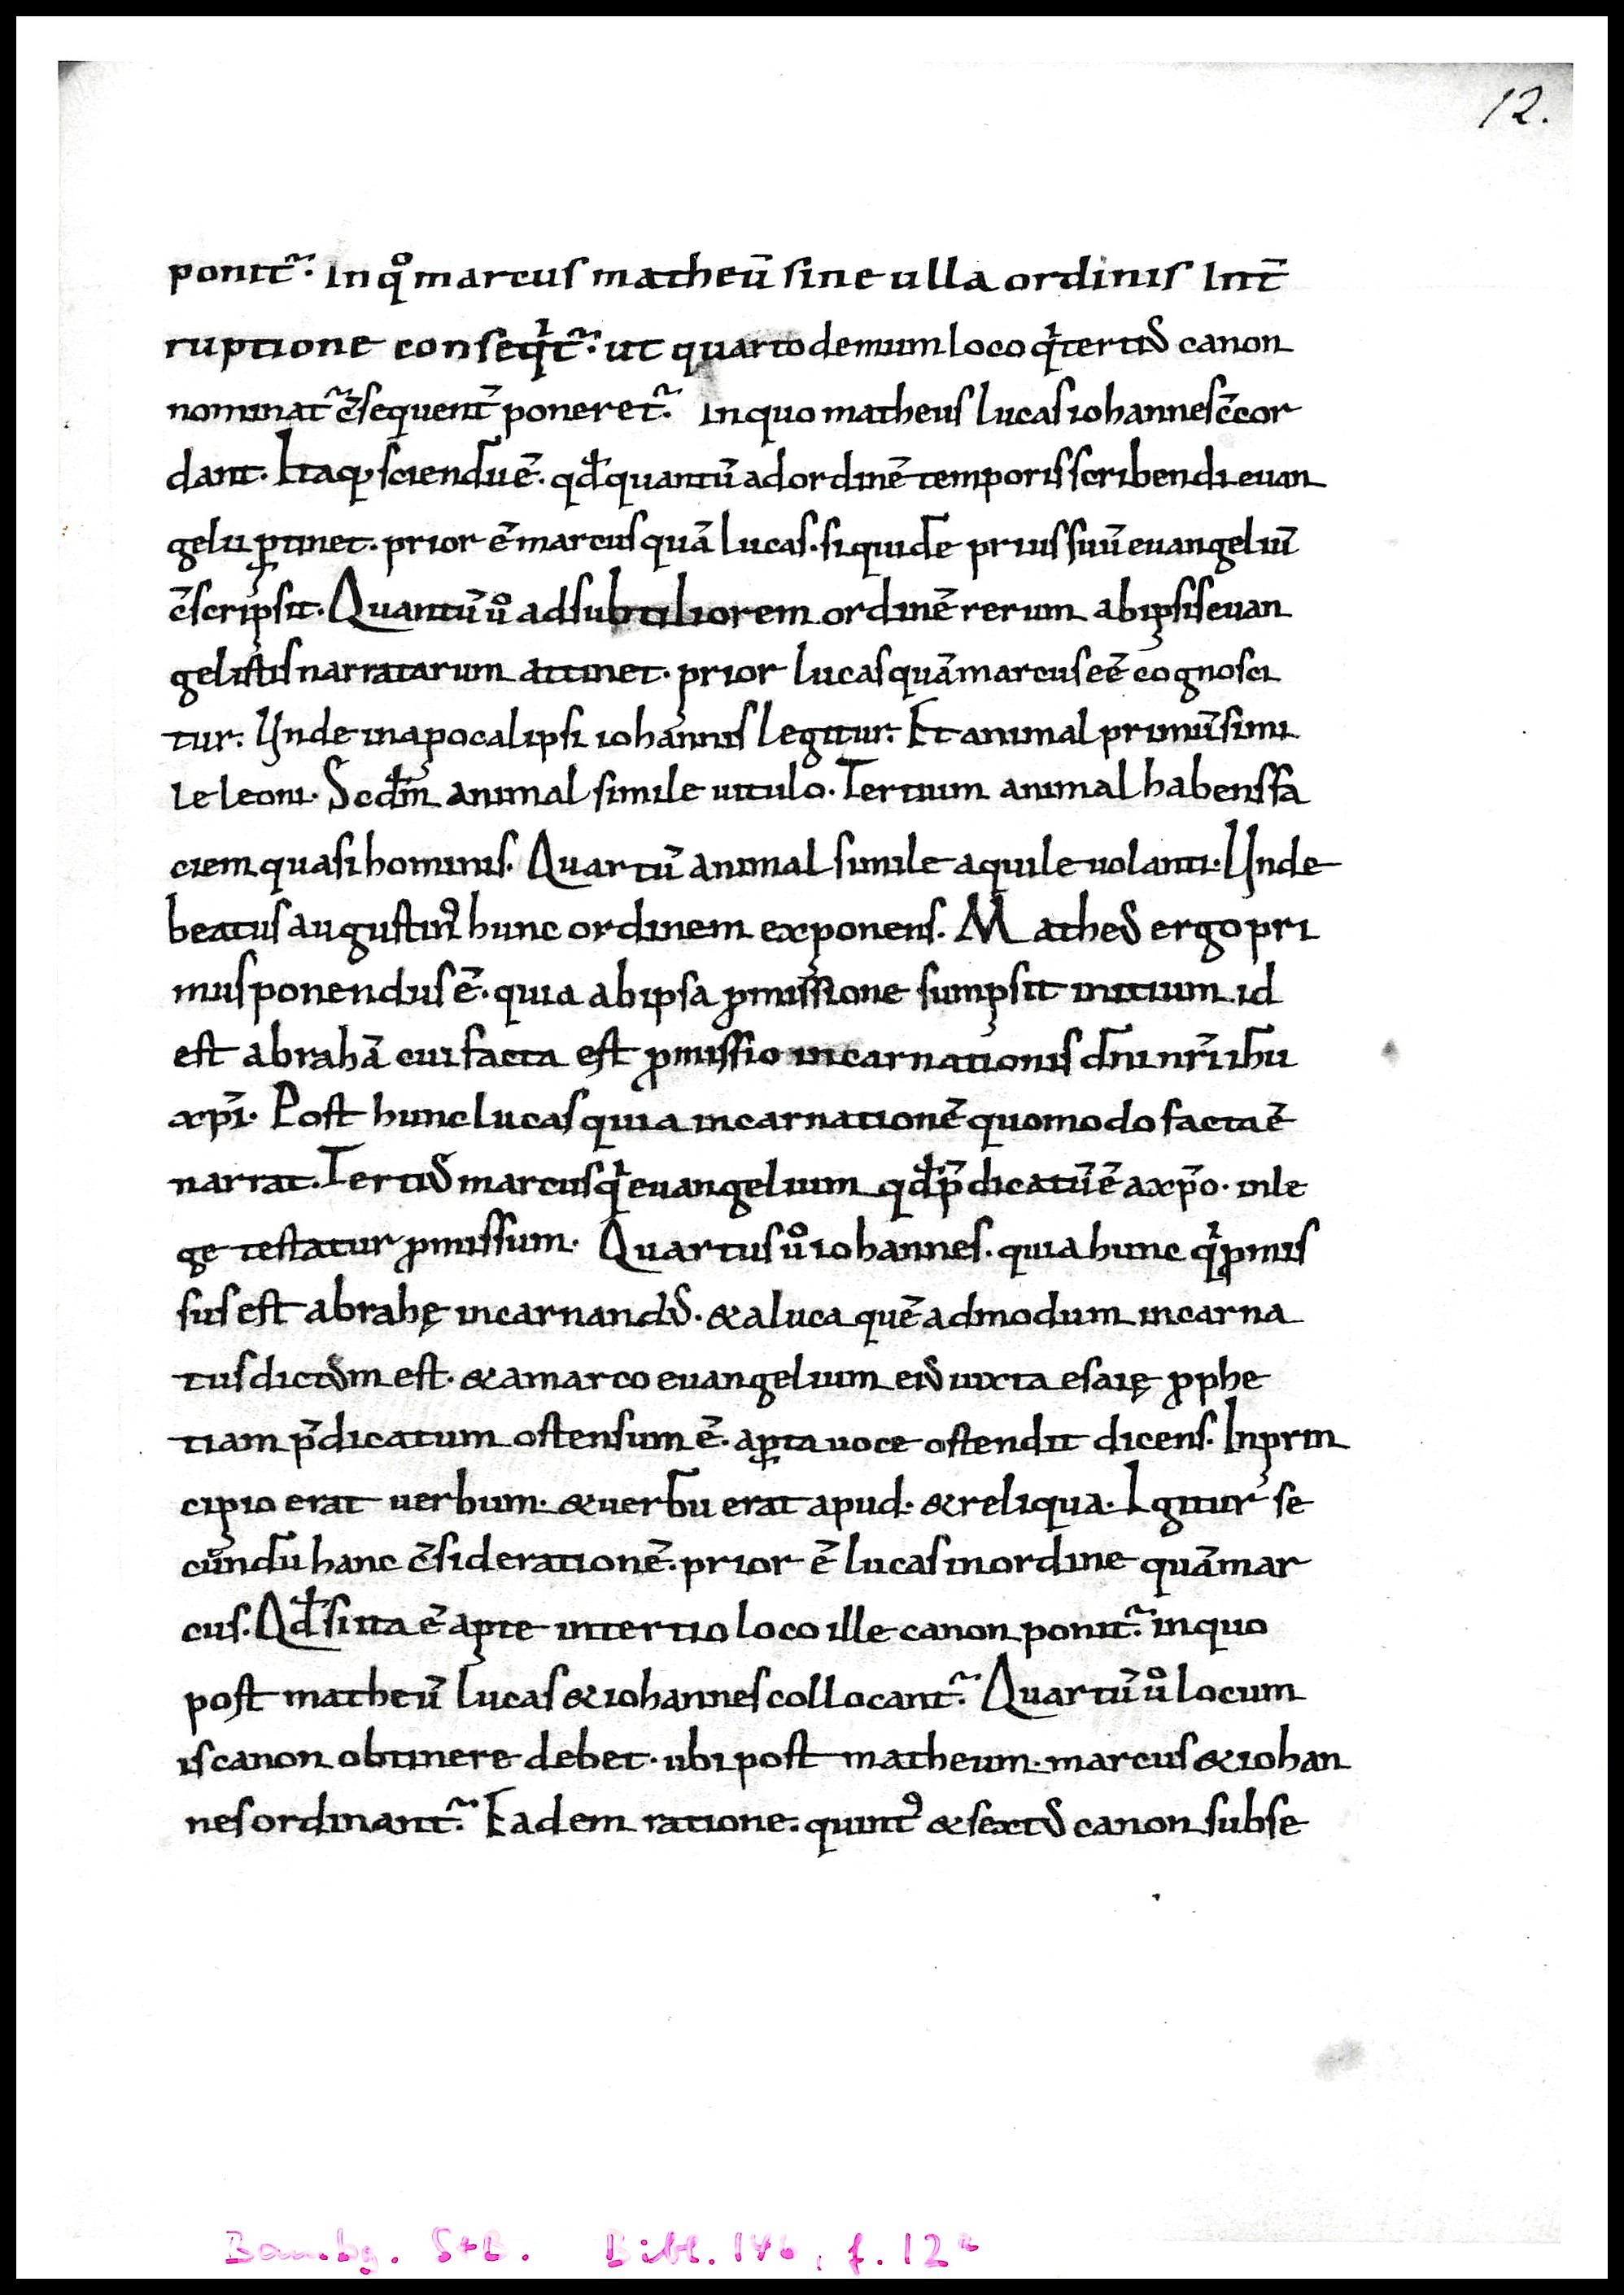 12.
ponit᷑. In qͦ marcus matheū sine ulla ordinis Int̄
ruptione conseqͥt᷑. ut quarto demum loco qͥ tertiꝰ canon
nominat᷑ c̄sequent̄ poneret᷑. In quo matheus lucas iohannes c̄cor
dant. Itaq; sciendū ē. qđ quantū ad ordinē temporis scribendi euan
gelii ꝑtinet. prior ē marcus quā lucas. siquidē prius suū euangeliū
c̄scripsit. Quantū uͦ ad subtiliorem ordinē rerum ab ipsis euan
gelistis narratarum attinet. prior lucas quā marcus eē cognosci
tur. Unde in apocalipsi iohannis legitur. Et animal primū simi
le leoni. Scđm animal simile uitulo. Tertium animal habens fa
ciem quasi hominis. Quartū animal simile aquile uolanti. Unde
beatus augustinꝰ hunc ordinem exponens. Matheꝰ ergo pri
mus ponendus ē. quia ab ipsa ꝓmissione sumpsit initium id
est abrahā cui facta est ꝓmissio incarnationis dn̄i nr̄i ihū
xp̄i. Post hunc lucas quia incarnationē quomodo facta ē
narrat. Tertiꝰ marcus qͥ euangelium qđ p̄dicatū ē a xp̄o. in le
ge testatur ꝓmissum. Quartus uͦ iohannes. quia hunc qͥ ꝓmis
sus est abrahę incarnandꝰ. & a luca quē admodum incarna
tus dictꝰm est. & a marco euangelium eiꝰ iuxta esaię ꝓphe
tiam p̄dicatum ostensum ē. aꝑta uoce ostendit dicens. In prin
cipio erat uerbum. & uerbū erat apud. & reliqua. Igitur se
cundū hanc c̄siderationē. prior ē lucas in ordine quā mar
cus. Qđ si ita ē apte in tertio loco ille canon ponit᷑. in quo
post matheū lucas & iohannes collocant᷑. Quartū uͦ locum
is canon obtinere debet. ubi post matheum. marcus & iohan
nes ordinant᷑. Eadem ratione. quintꝰ & sextꝰ canon subse
Bambg. StB. Bibl. 146, f. 12r